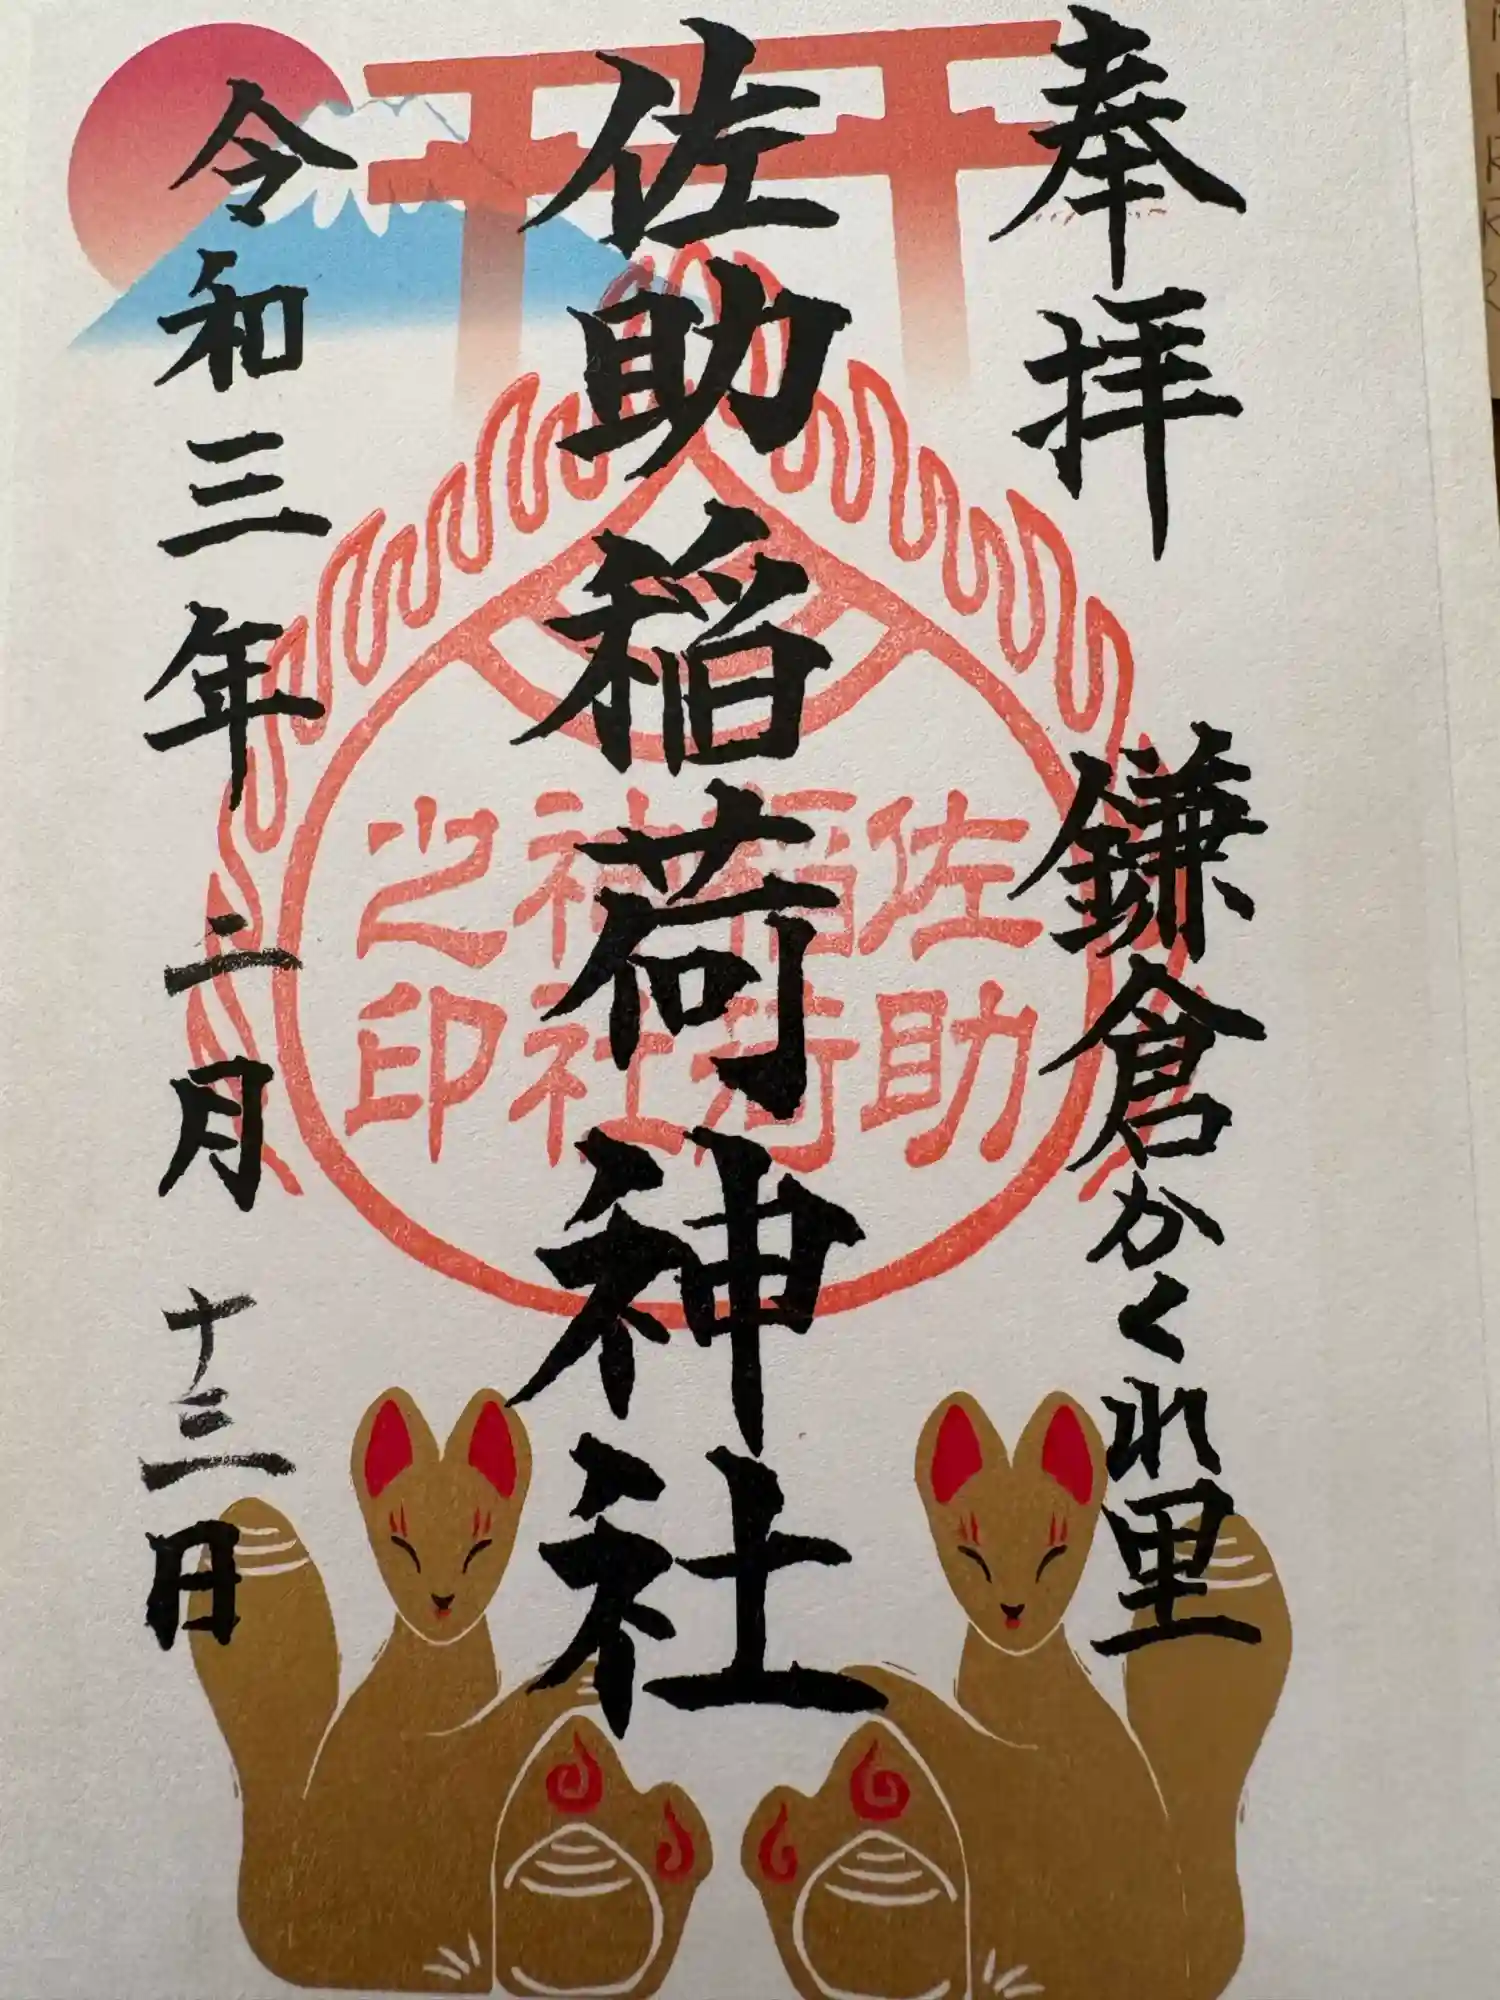 奉拝 鎌倉かくれ里
佐助稲荷神社
令和三年 二月 十三日
佐助
稲荷
神社
之印